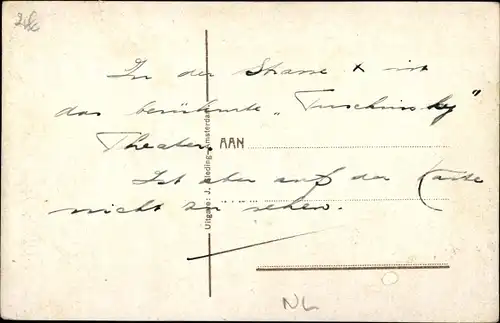 In der Strasse x ist
das berühmte „Tuschinsky"
Theater. AAN
Ist aber auf der Karte
nicht zu sehen.
Uitgave: J. Sleding-Amsterdam
NL